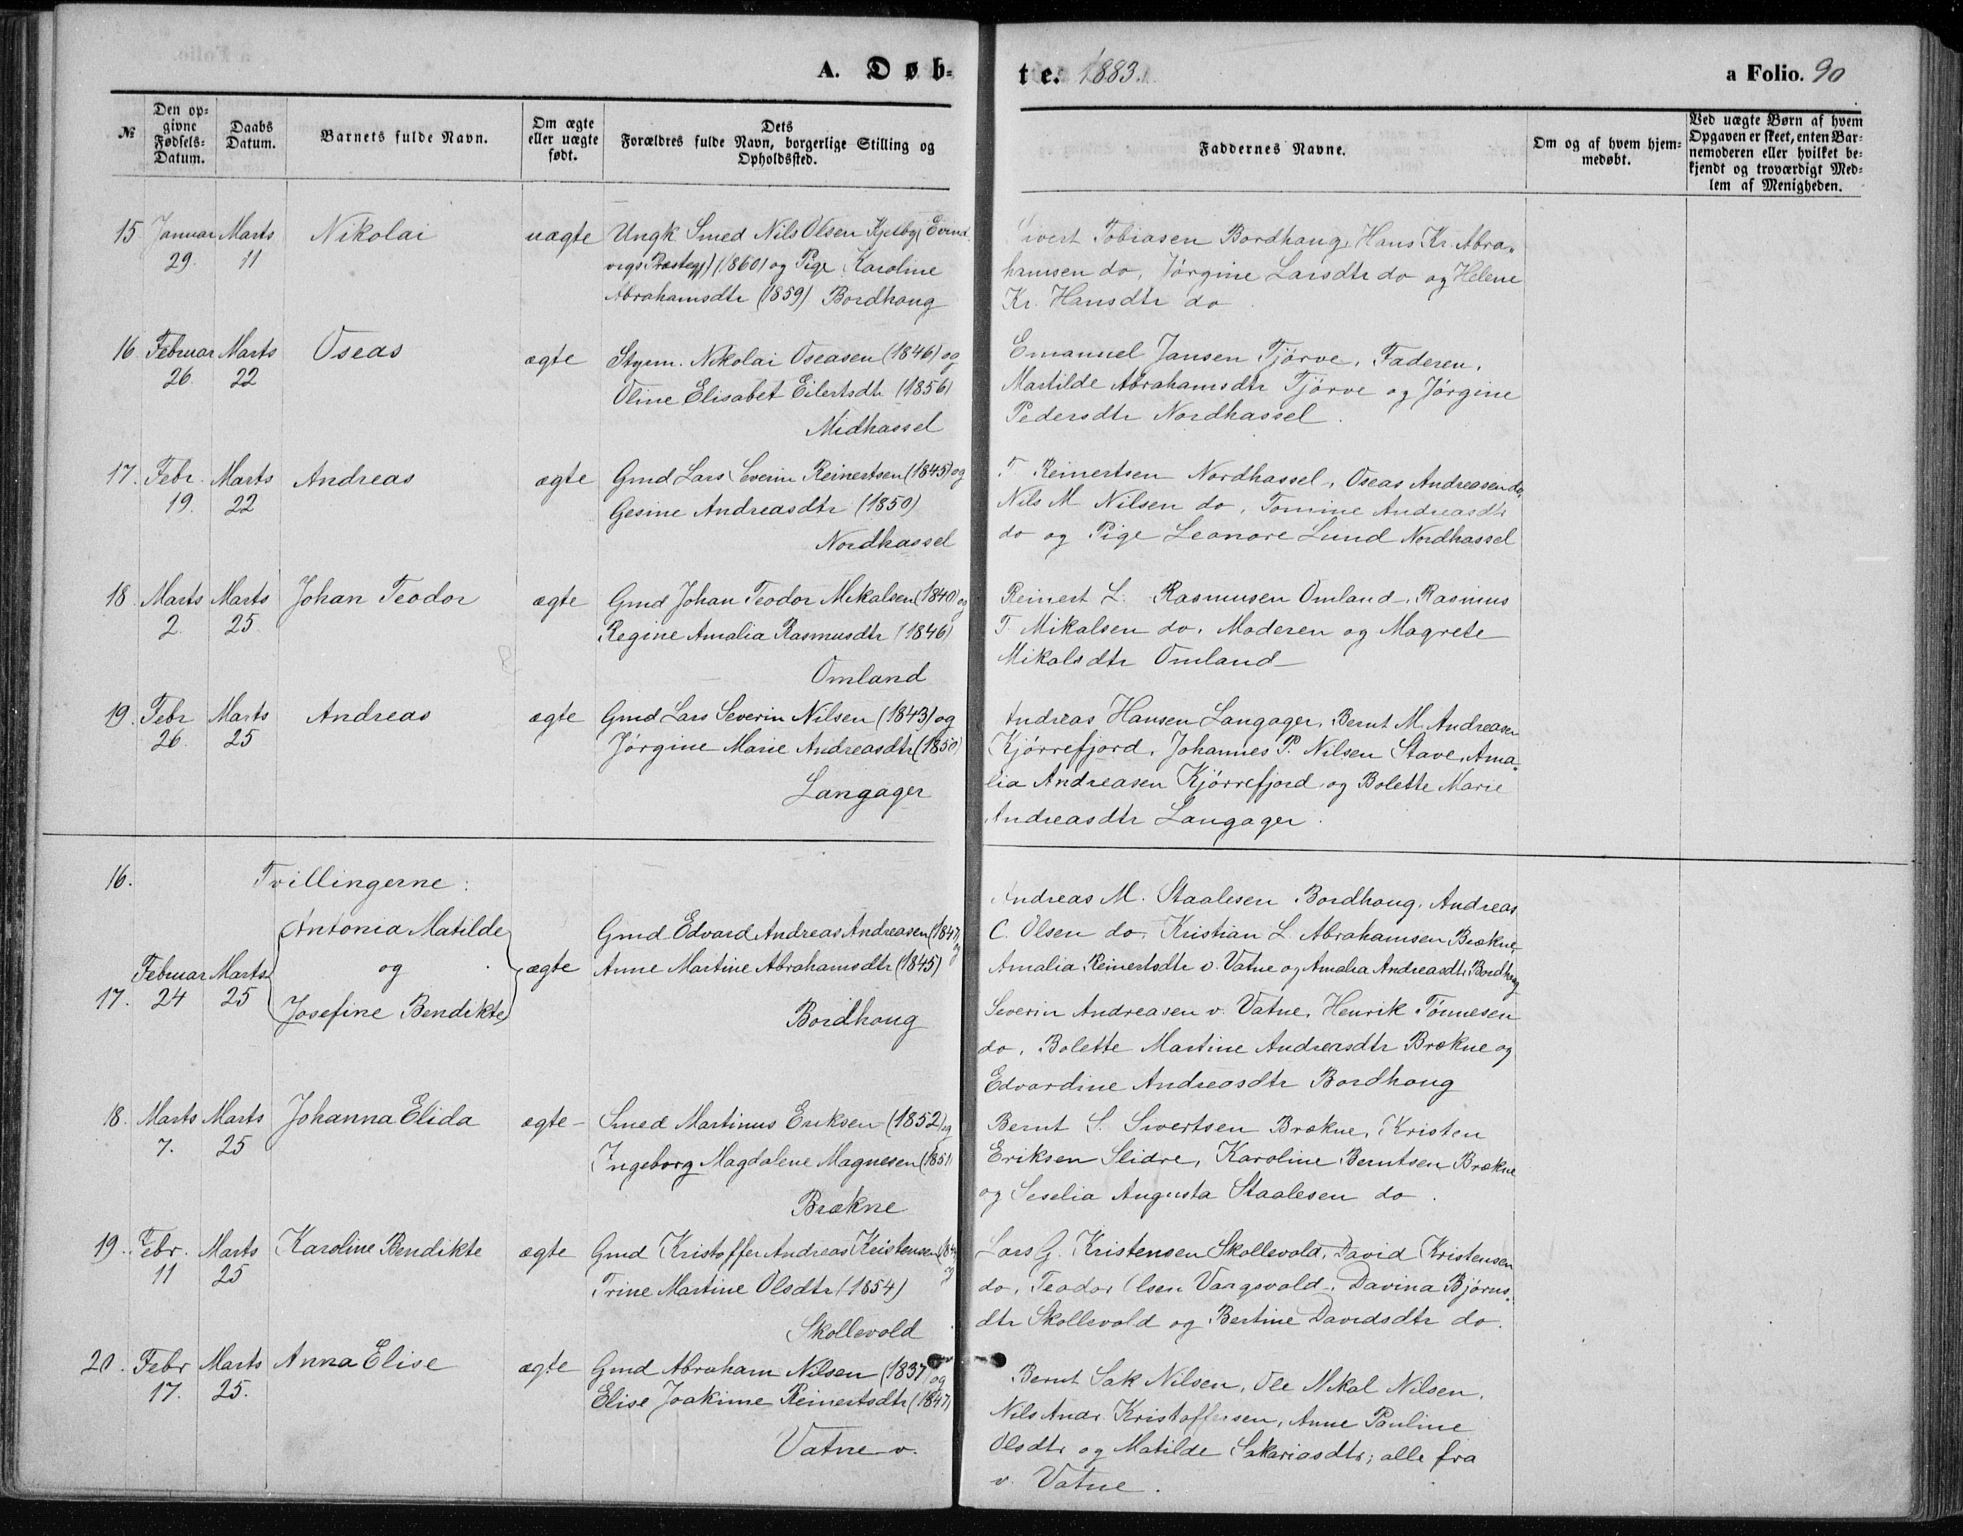 A. Døb-
te. 1883.
a Folio. 90
№
Den op-
givne
Fødsels-
Datum.
Daabs
Datum.
Barnets fulde Navn.
Om ægte
eller uægte
født.
Dets
Forældres fulde Navn, borgerlige Stilling og
Opholdssted.
Faddernes Navne.
Om og af hvem hjem-
medøbt.
Ved uægte Børn af hvem
Opgaven er skeet, enten Bar-
nemoderen eller hvilket be-
kjendt og troværdigt Med-
lem af Menigheden.
15 Januar Marts Nikolai uægte Ungk Smed Nils Olsen Kjelby (Evind
29. 11 vigs Præstegj) (1860) og Pige Karoline
Abrahamsdtr (1859) Bordhoug
Sivert Tobiasen Bordhaug, Hans Kr. Abra-
hamsen do, Jørgine Larsdtr do og Helene
Kr. Hansdtr do.
16 Februar Marts Oseas ægte Styrm. Nikolai Oseasen (1846) og
26. 22 Oline Elisabet Eilertsdtr (1856)
Midhassel
Emanuel Jansen Tjørve, Faderen,
Martilde Abrahamsdtr Tjørve og Jørgine
Pedersdtr Nordhassel.
17. Febr. Marts Andreas ægte Gmd Lars Severin Reinertsen (1845) og
19. 22 Gesine Andreasdtr (1850)
Nordhassel
T. Reinertsen Nordhassel, Oseas Andreasen do,
Nils M Nilsen do, Tomine Andreasdtr
do og Pige Leonore Lund Nordhassel
18 Marts Marts Johan Teodor ægte Gmd Johan Teodor Mikalsen (1840) og
2. 25. Regine Amalia Rasmusdtr (1846)
Omland
Reinert L. Rasmusen Omland, Rasmus
T. Mikalsen do, Moderen og Magrete
Mikalsdtr Omland
19. Febr Marts Andreas ægte Gmd Lars Severin Nilsen (1843) og
26. 25 Jørgine Marie Andreasdtr (1850)
Langager
Andreas Hansen Langager, Bernt M. Andreasen
Kjørrefjord, Johannes P. Nilsen Stave, Ama-
lia Andreasen Kjørrefjord og Bolette Marie
Andreasdtr Langager.
16. Tvillingerne:
Antonia Matilde Gmd Edvard Andreas Andreasen (1847) og
Februar Marts og ægte Anne Martine Abrahamsdtr (1845)
17. 24 25 Josefine Bendikte Bordhoug
Andreas M. Staalesen Bordhoug, Andreas
C. Olsen do, Kristian L. Abrahamsen Brækne,
Amalia Reinertsdtr v. Vatne og Amalia Andreasdtr Bordhoug
Severin Andreasen v. Vatne, Henrik Tønnesen
do, Bolette Martine Andreasdtr Brækne og
Edvardine Andreasdtr Bordhoug
18. Marts Marts Johanna Elida ægte Smed Martinus Eriksen (1852) og
7. 25 Ingeborg Magdalene Magnesen (1851)
Brækne
Bernt S. Sivertsen Brækne, Kristen
Eriksen Slidre, Karoline Berntsen Brækne
og Seselia Augusta Staalesen do.
19. Febr. Marts Karoline Bendikte ægte Gmd Kristoffer Andreas Kristensen og
11 25 Trine Martine Olsdtr (1854)
Skollevold
Lars G. Kristensen Skollevold, David Kristensen
do, Teodor Olsen Vaagsvold, Davina Bjørns-
dtr Skollevold og Bertine Davidsdtr do.
20. Febr Marts Anna Elise ægte Gmd Abraham Nilsen (1837) og
17. 25. Elise Joakime Reinertsdtr (1847)
Vatne v.
Bernt Sak Nilsen, Ole Mikal Nilsen,
Nils Andr. Kristoffersen, Anne Pauline
Olsdtr og Matilde Sakariasdtr; alle fra
v. Vatne.